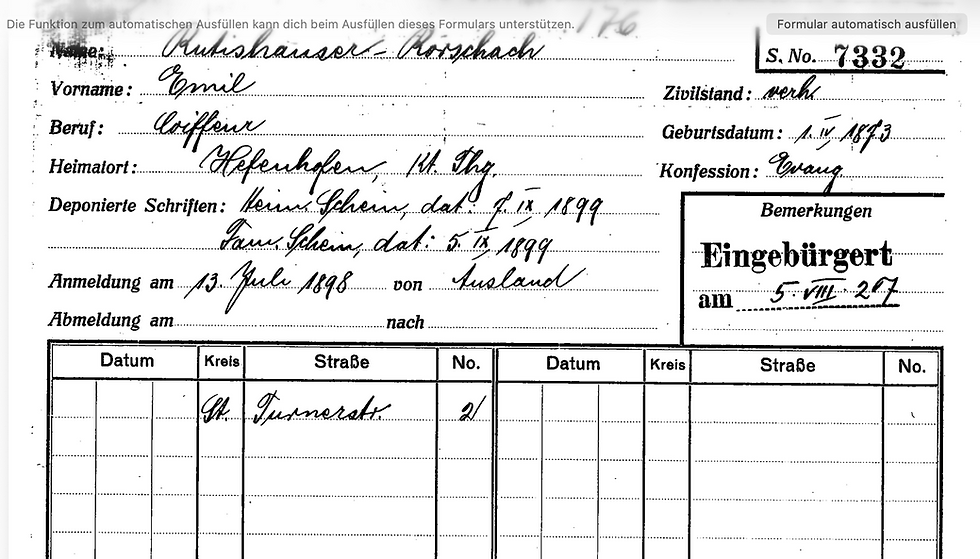 Die Funktion zum automatischen Ausfüllen kann dich beim Ausfüllen dieses Formulars unterstützen.
Formular automatisch ausfüllen
176
Name: Rutishauser - Rorschach
S. No. 7332
Vorname: Emil
Zivilstand: verh.
Beruf: Coiffeur
Geburtsdatum: 1. IV. 1873
Heimatort: Hefenhofen, Kt. Thg.
Konfession: Evang.
Deponierte Schriften: Heim. Schein, dat: 7. IX 1899
Bemerkungen
Fam. Schein, dat: 5. IX 1899
Eingebürgert
Anmeldung am 13. Juli 1898 von Ausland
am 5. VIII.
Abmeldung am nach
Datum Kreis Straße No. Datum Kreis Straße No.
St. Turnerstr. 21